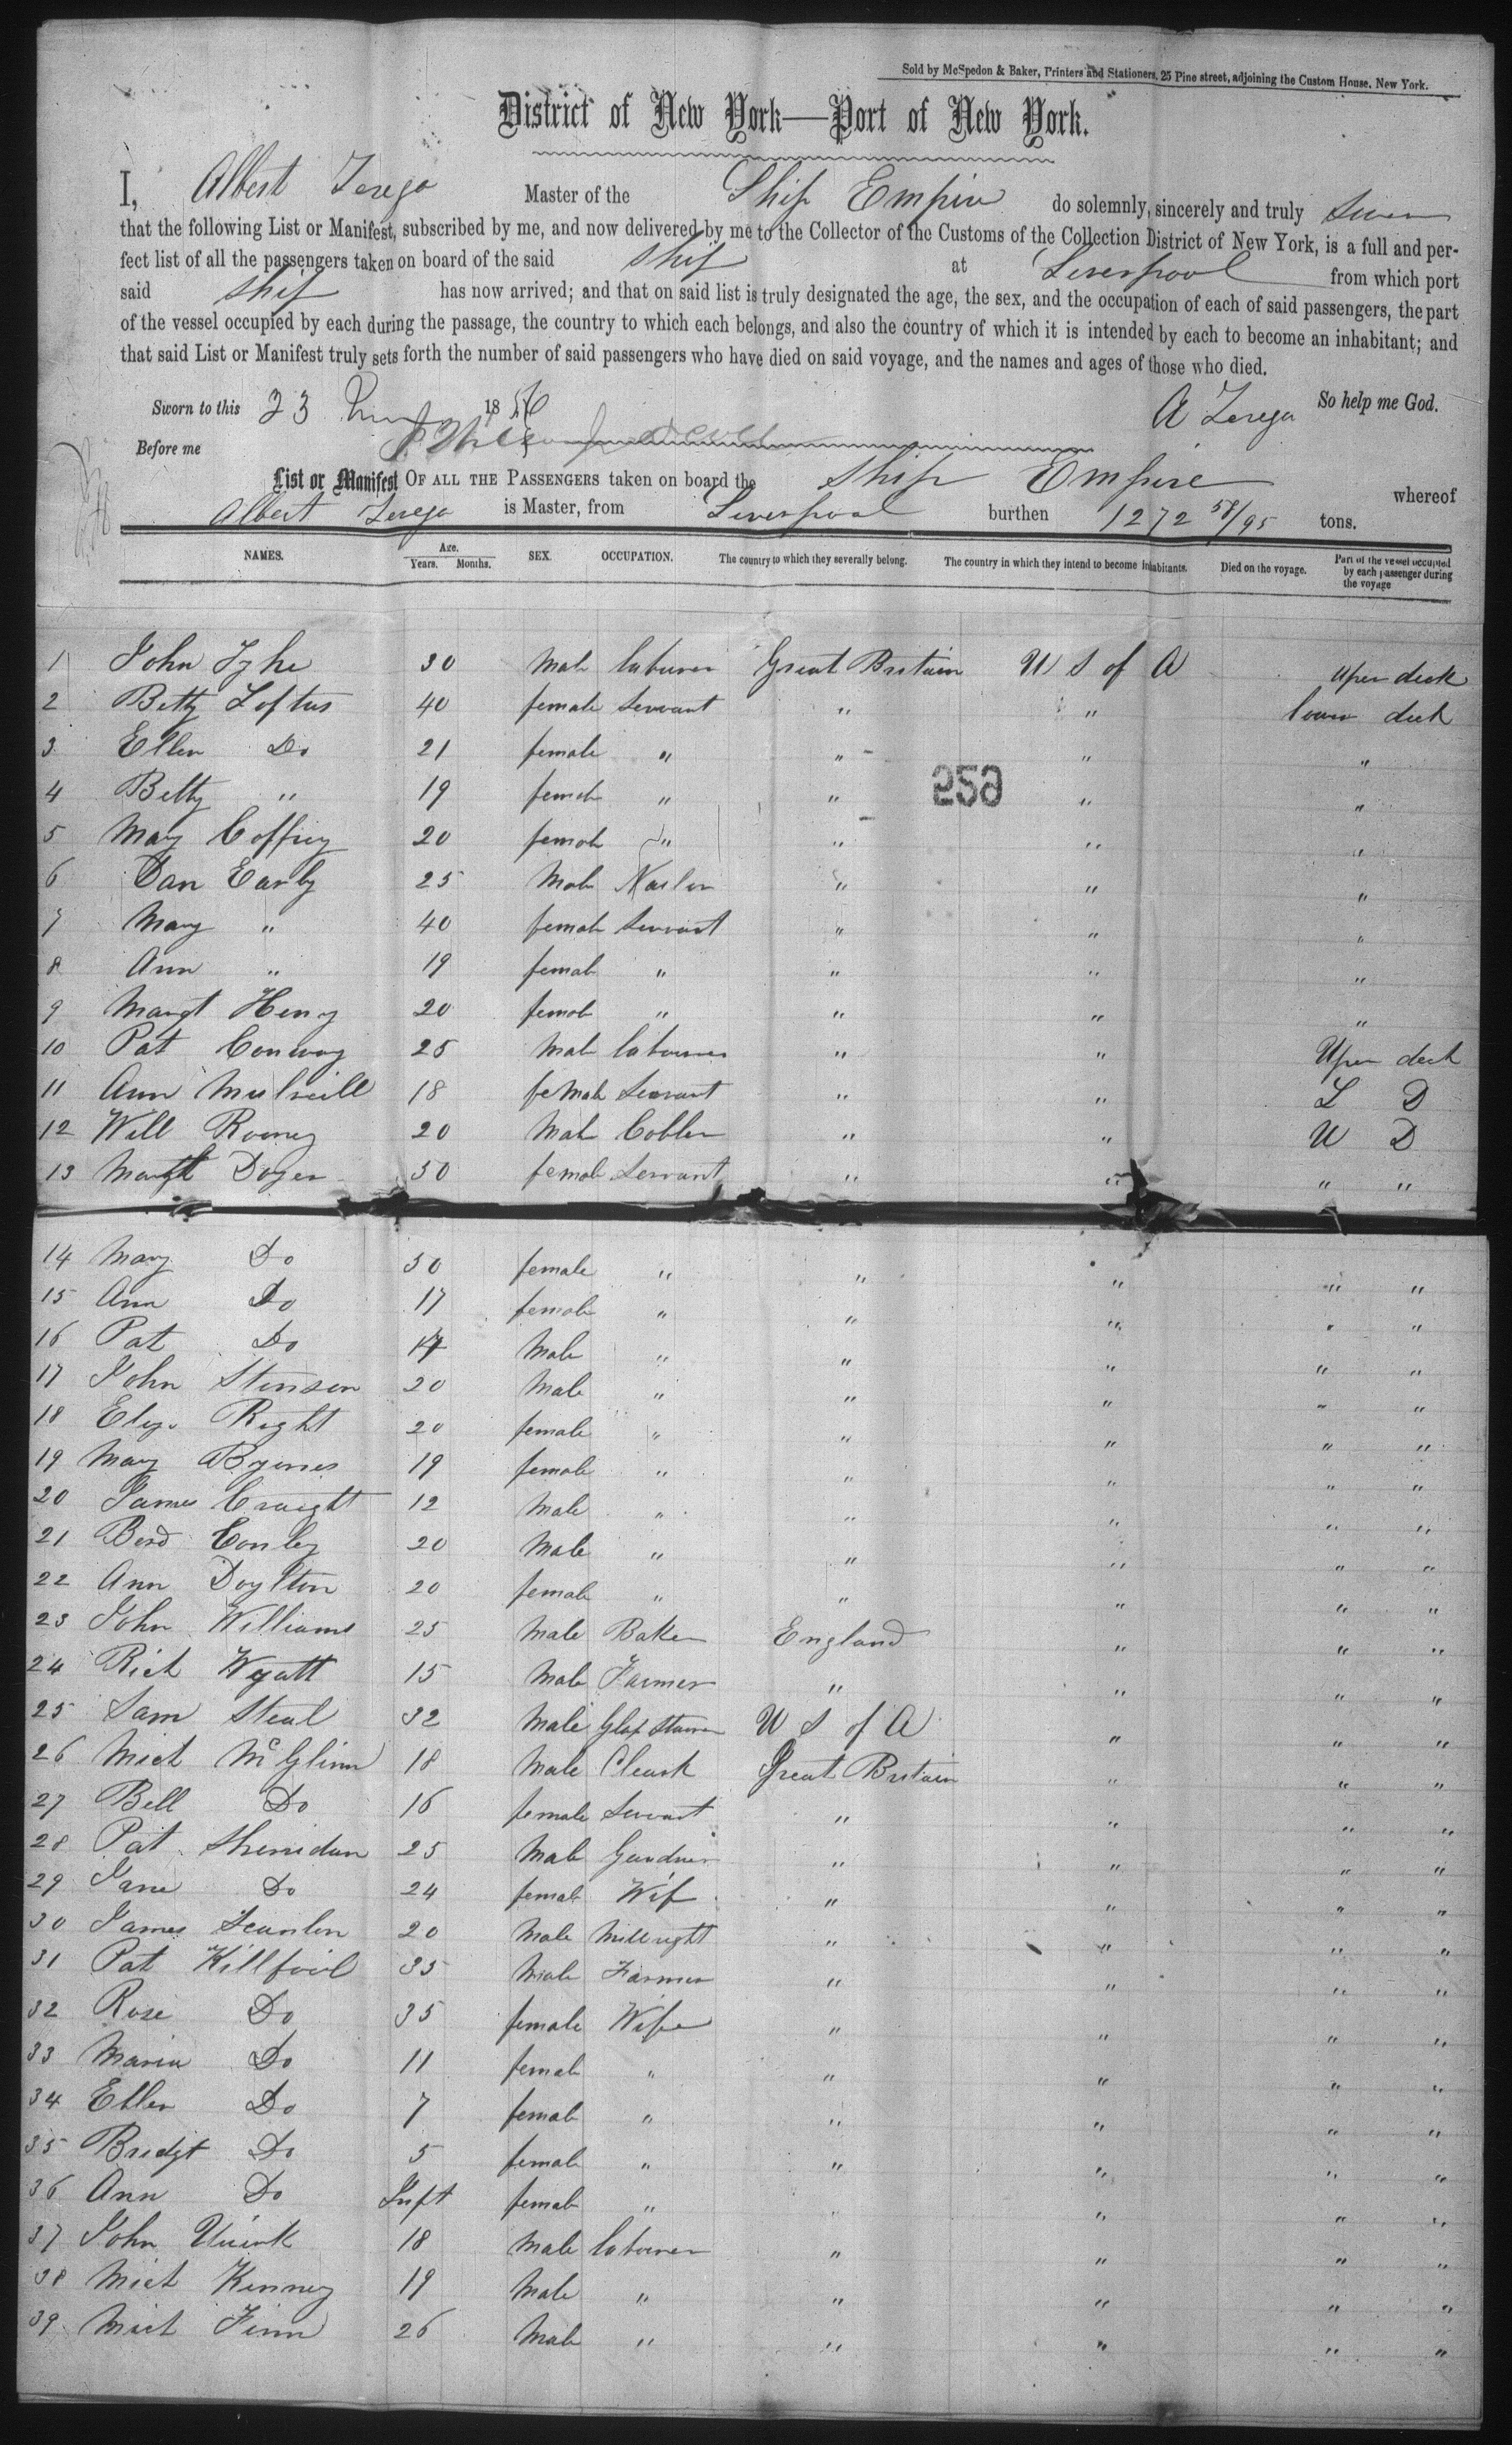 Sold by McSpedon & Baker, Printers and Stationers, 25 Pine street, adjoining the Custom House, New York.
District of New York—Port of New York.
I, Albert Zerega Master of the Ship Empire do solemnly, sincerely and truly swear
that the following List or Manifest, subscribed by me, and now delivered by me to the Collector of the Customs of the Collection District of New York, is a full and per-
fect list of all the passengers taken on board of the said Ship at Liverpool from which port
said Ship has now arrived; and that on said list is truly designated the age, the sex, and the occupation of each of said passengers, the part
of the vessel occupied by each during the passage, the country to which each belongs, and also the country of which it is intended by each to become an inhabitant; and
that said List or Manifest truly sets forth the number of said passengers who have died on said voyage, and the names and ages of those who died.
Sworn to this 23 1856 A Zerega So help me God.
Before me
List or Manifest OF ALL THE PASSENGERS taken on board the Ship Empire whereof
Albert Zerega is Master, from Liverpool burthen 1272 58/95 tons.
NAMES. Age. Years. Months. SEX. OCCUPATION. The country to which they severally belong. The country in which they intend to become inhabitants. Died on the voyage. Part of the vessel occupied by each passenger during the voyage
1 John Tyhe 30 Male labourer Great Britain U S of A Uper deck
2 Betty Loftus 40 female Servant " " lower deck
3 Ellen Do 21 female " " " "
259
4 Betty " 19 female " " " "
5 Mary Coffiey 20 female " " " "
6 Dan Early 25 Male Naylor " " "
7 Mary " 40 female Servant " " "
8 Ann " 19 female " " " "
9 Margt Henry 20 female " " " "
10 Pat Conway 25 Male labourer " " Uper deck
11 Ann Mulreill 18 female Servant " " L D
12 Will Rooney 20 Male Cobler " " U D
13 Margt Doyer 50 female Servant " " " "
14 Mary Do 30 female " " " " "
15 Ann Do 17 female " " " " "
16 Pat Do Male " " " " "
17 John Stinson 20 Male " " " " "
18 Right 20 female " " " " "
19 Mary Byrnes 19 female " " " " "
20 James Craight 12 Male " " " " "
21 Conley 20 Male " " " " "
22 Ann Doylton 20 female " " " " "
23 John Williams 25 Male Baker England " " "
24 Rich Wyatt 15 Male Farmer " " " "
25 Sam Steal 32 Male U S of A " " "
26 Mich McGlinn 18 Male Cleark Great Britain " " "
27 Bell Do 16 female Servant " " " "
28 Pat Sheridan 25 Male Gardner " " " "
29 Jane Do 24 female Wif " " " "
30 James Scanlon 20 Male Millright " " " "
31 Pat Killfoil 35 Male Farmer " " " "
32 Rose Do 35 female Wife " " " "
33 Maria Do 11 female " " " " "
34 Ellen Do 7 female " " " " "
35 Bridgt Do 5 female " " " " "
36 Ann Do Inft female " " " "
37 John Quirk 18 Male labourer " " " "
38 Mich Kenney 19 Male " " " " "
39 Mich Finn 26 Male " " " " "